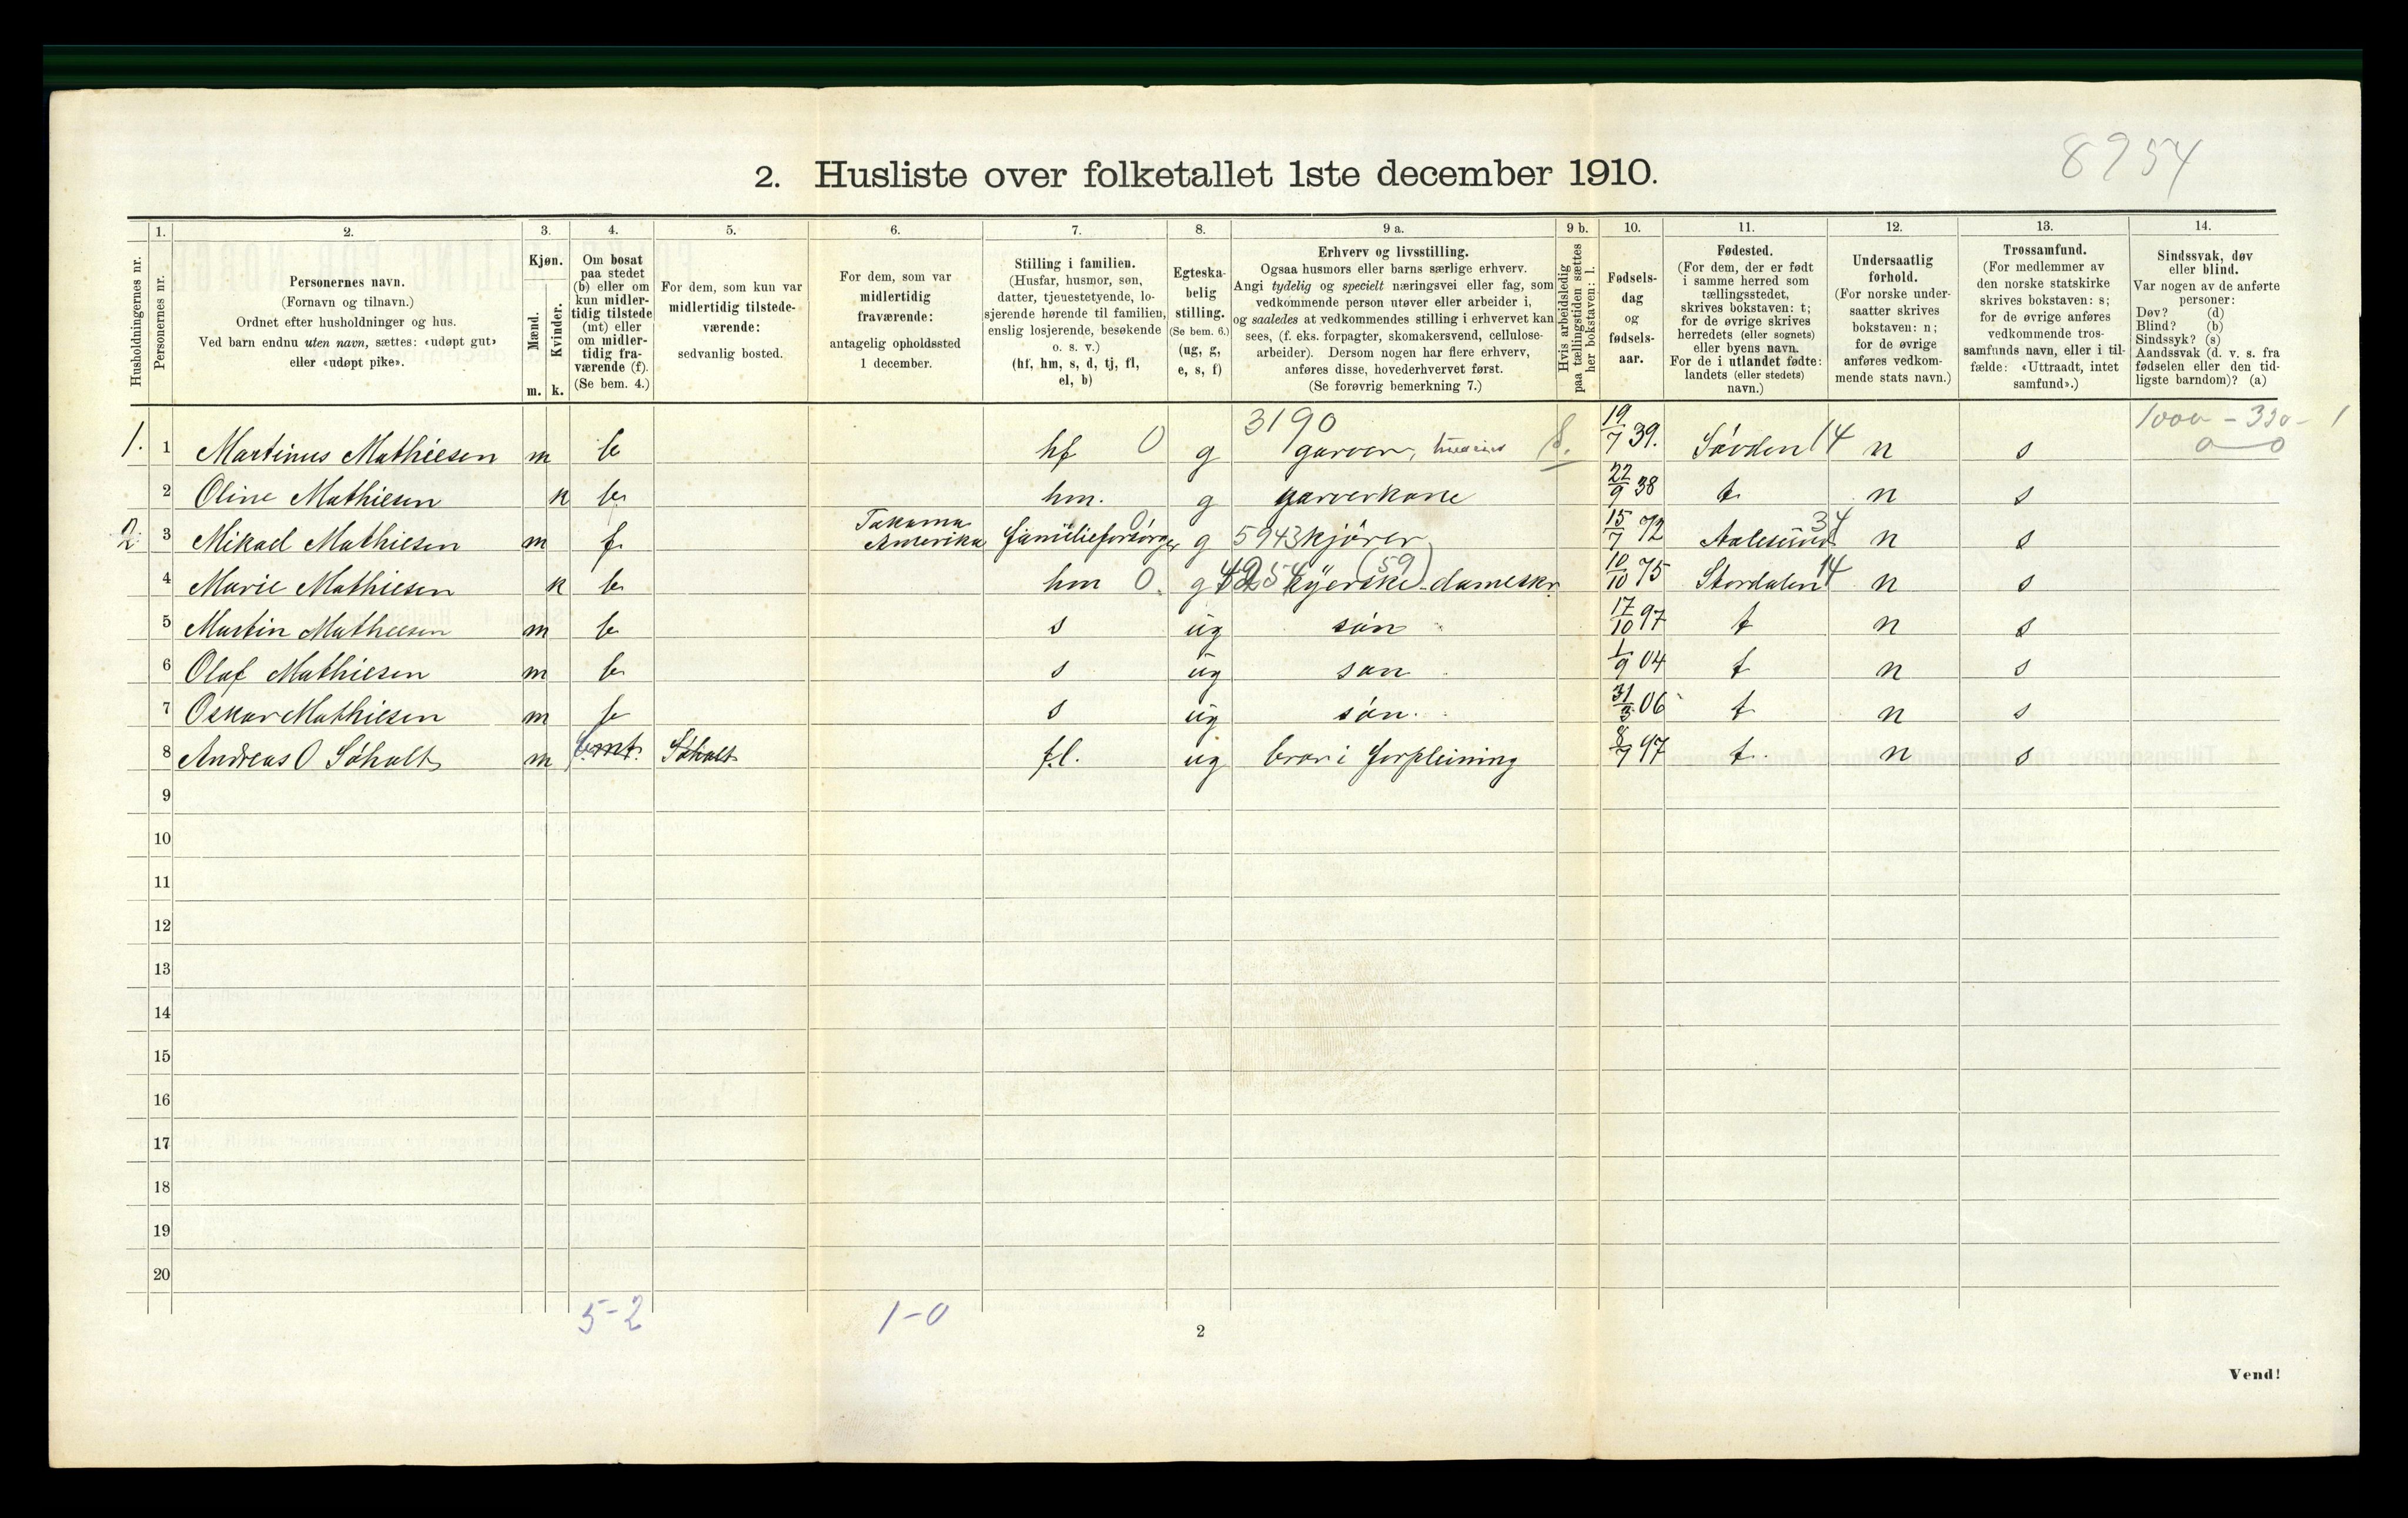 8954
2. Husliste over folketallet 1ste december 1910.
Husholdningernes nr.
1.
Personernes nr.
2.
Personernes navn.
(Fornavn og tilnavn.)
Ordnet efter husholdninger og hus.
Ved barn endnu uten navn, sættes: «udøpt gut»
eller «udøpt pike».
3.
Kjøn.
Mænd.
Kvinder.
m. k.
4.
Om bosat
paa stedet
(b) eller om
kun midler-
tidig tilstede
(mt) eller
om midler-
tidig fra-
værende (f).
(Se bem. 4.)
5.
For dem, som kun var
midlertidig tilstede-
værende:
sedvanlig bosted.
6.
For dem, som var
midlertidig
fraværende:
antagelig opholdssted
1 december.
7.
Stilling i familien.
(Husfar, husmor, søn,
datter, tjenestetyende, lo-
sjerende hørende til familien,
enslig losjerende, besøkende
o. s. v.)
(hf, hm, s, d, tj, fl,
el, b)
8.
Egteska-
belig
stilling.
(Se bem. 6.)
(ug, g,
e, s, f)
9 a.
Erhverv og livsstilling.
Ogsaa husmors eller barns særlige erhverv.
Angi tydelig og specielt næringsvei eller fag, som
vedkommende person utøver eller arbeider i,
og saaledes at vedkommendes stilling i erhvervet kan
sees, (f. eks. forpagter, skomakersvend, cellulose-
arbeider). Dersom nogen har flere erhverv,
anføres disse, hovederhvervet først.
(Se forøvrig bemerkning 7.)
9 b.
Hvis arbeidsledig
paa tællingstiden sættes
her bokstaven: l.
10.
Fødsels-
dag
og
fødsels-
aar.
11.
Fødested.
(For dem, der er født
i samme herred som
tællingsstedet,
skrives bokstaven: t;
for de øvrige skrives
herredets (eller sognets)
eller byens navn.
For de i utlandet fødte:
landets (eller stedets)
navn.)
12.
Undersaatlig
forhold.
(For norske under-
saatter skrives
bokstaven: n;
for de øvrige
anføres vedkom-
mende stats navn.)
13.
Trossamfund.
(For medlemmer av
den norske statskirke
skrives bokstaven: s;
for de øvrige anføres
vedkommende tros-
samfunds navn, eller i til-
fælde: «Uttraadt, intet
samfund».)
14.
Sindssvak, døv
eller blind.
Var nogen av de anførte
personer:
Døv? (d)
Blind? (b)
Sindssyk? (s)
Aandssvak (d. v. s. fra
fødselen eller den tid-
ligste barndom)? (a)
1. 1 Martinus Mathiesen m b hf 0 g 3190 garver, 19/7 39. Søvden 14 n s
2 Oline Mathiesen k b hm. g garverkone 22/9 38 t n s
2. 3 Mikael Mathiesen m f Takoma Amerika familieforsørger 0 g 5943 kjører 15/7 72 Aalesund 34 n s
4 Marie Mathiesen k b hm 0 g syerske dameskr. (59) 10/10 75 Stordalen 14 n s
5 Martin Mathiesen m b s ug søn 17/10 97 t n s
6 Olaf Mathiesen m b s ug søn 1/9 04 t n s
7 Oskar Mathiesen m b s ug søn. 31/3 06 t n s
8 Andreas O Søholt m mt. Søholt fl. ug bror i forpleining 8/7 97 t. n s
9
10
11
12
13
14
15
16
17
18
19
20
5-2
1-0
2
Vend!